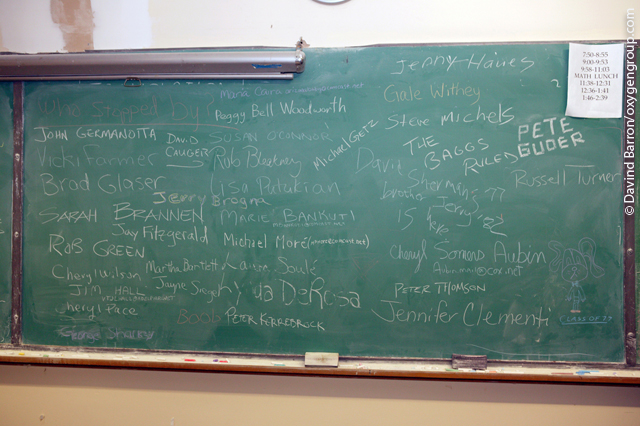 Who Stopped By?
JOHN GERMANOTTA
Vicki Farmer
Brad Glaser
SARAH BRANNEN
Jay Fitzgerald
ROB GREEN
Cheryl Wilson
JIM HALL
Cheryl Pace
DAVID
Maria
Peggy Bell Woodworth
SUSAN O'CONNOR
Rob Blackney
Lisa Palakian
Jerry
Brogna
MARIE BANKUTI
Michael More
Martha Bartlett
Jayne Siegel
Karen Soule
DeRosa
Boob
PETER KIRREBROCK
Michael Getz
Jenny Haires
Gale Withey
Steve Michels
THE
BAGGS
RULED
PETE
GUDER
David
Sherman
brother
Jerry
is
Russell Turner
Cheryl Somers Aubin
PETER THOMSON
Jennifer Clementi
CLASS OF 77
7:50-8:55
9:00-9:53
9:58-11:03
MATH LUNCH
11:38-12:31
12:36-1:41
1:46-2:39
© Davind Barron/oxygengroup.com